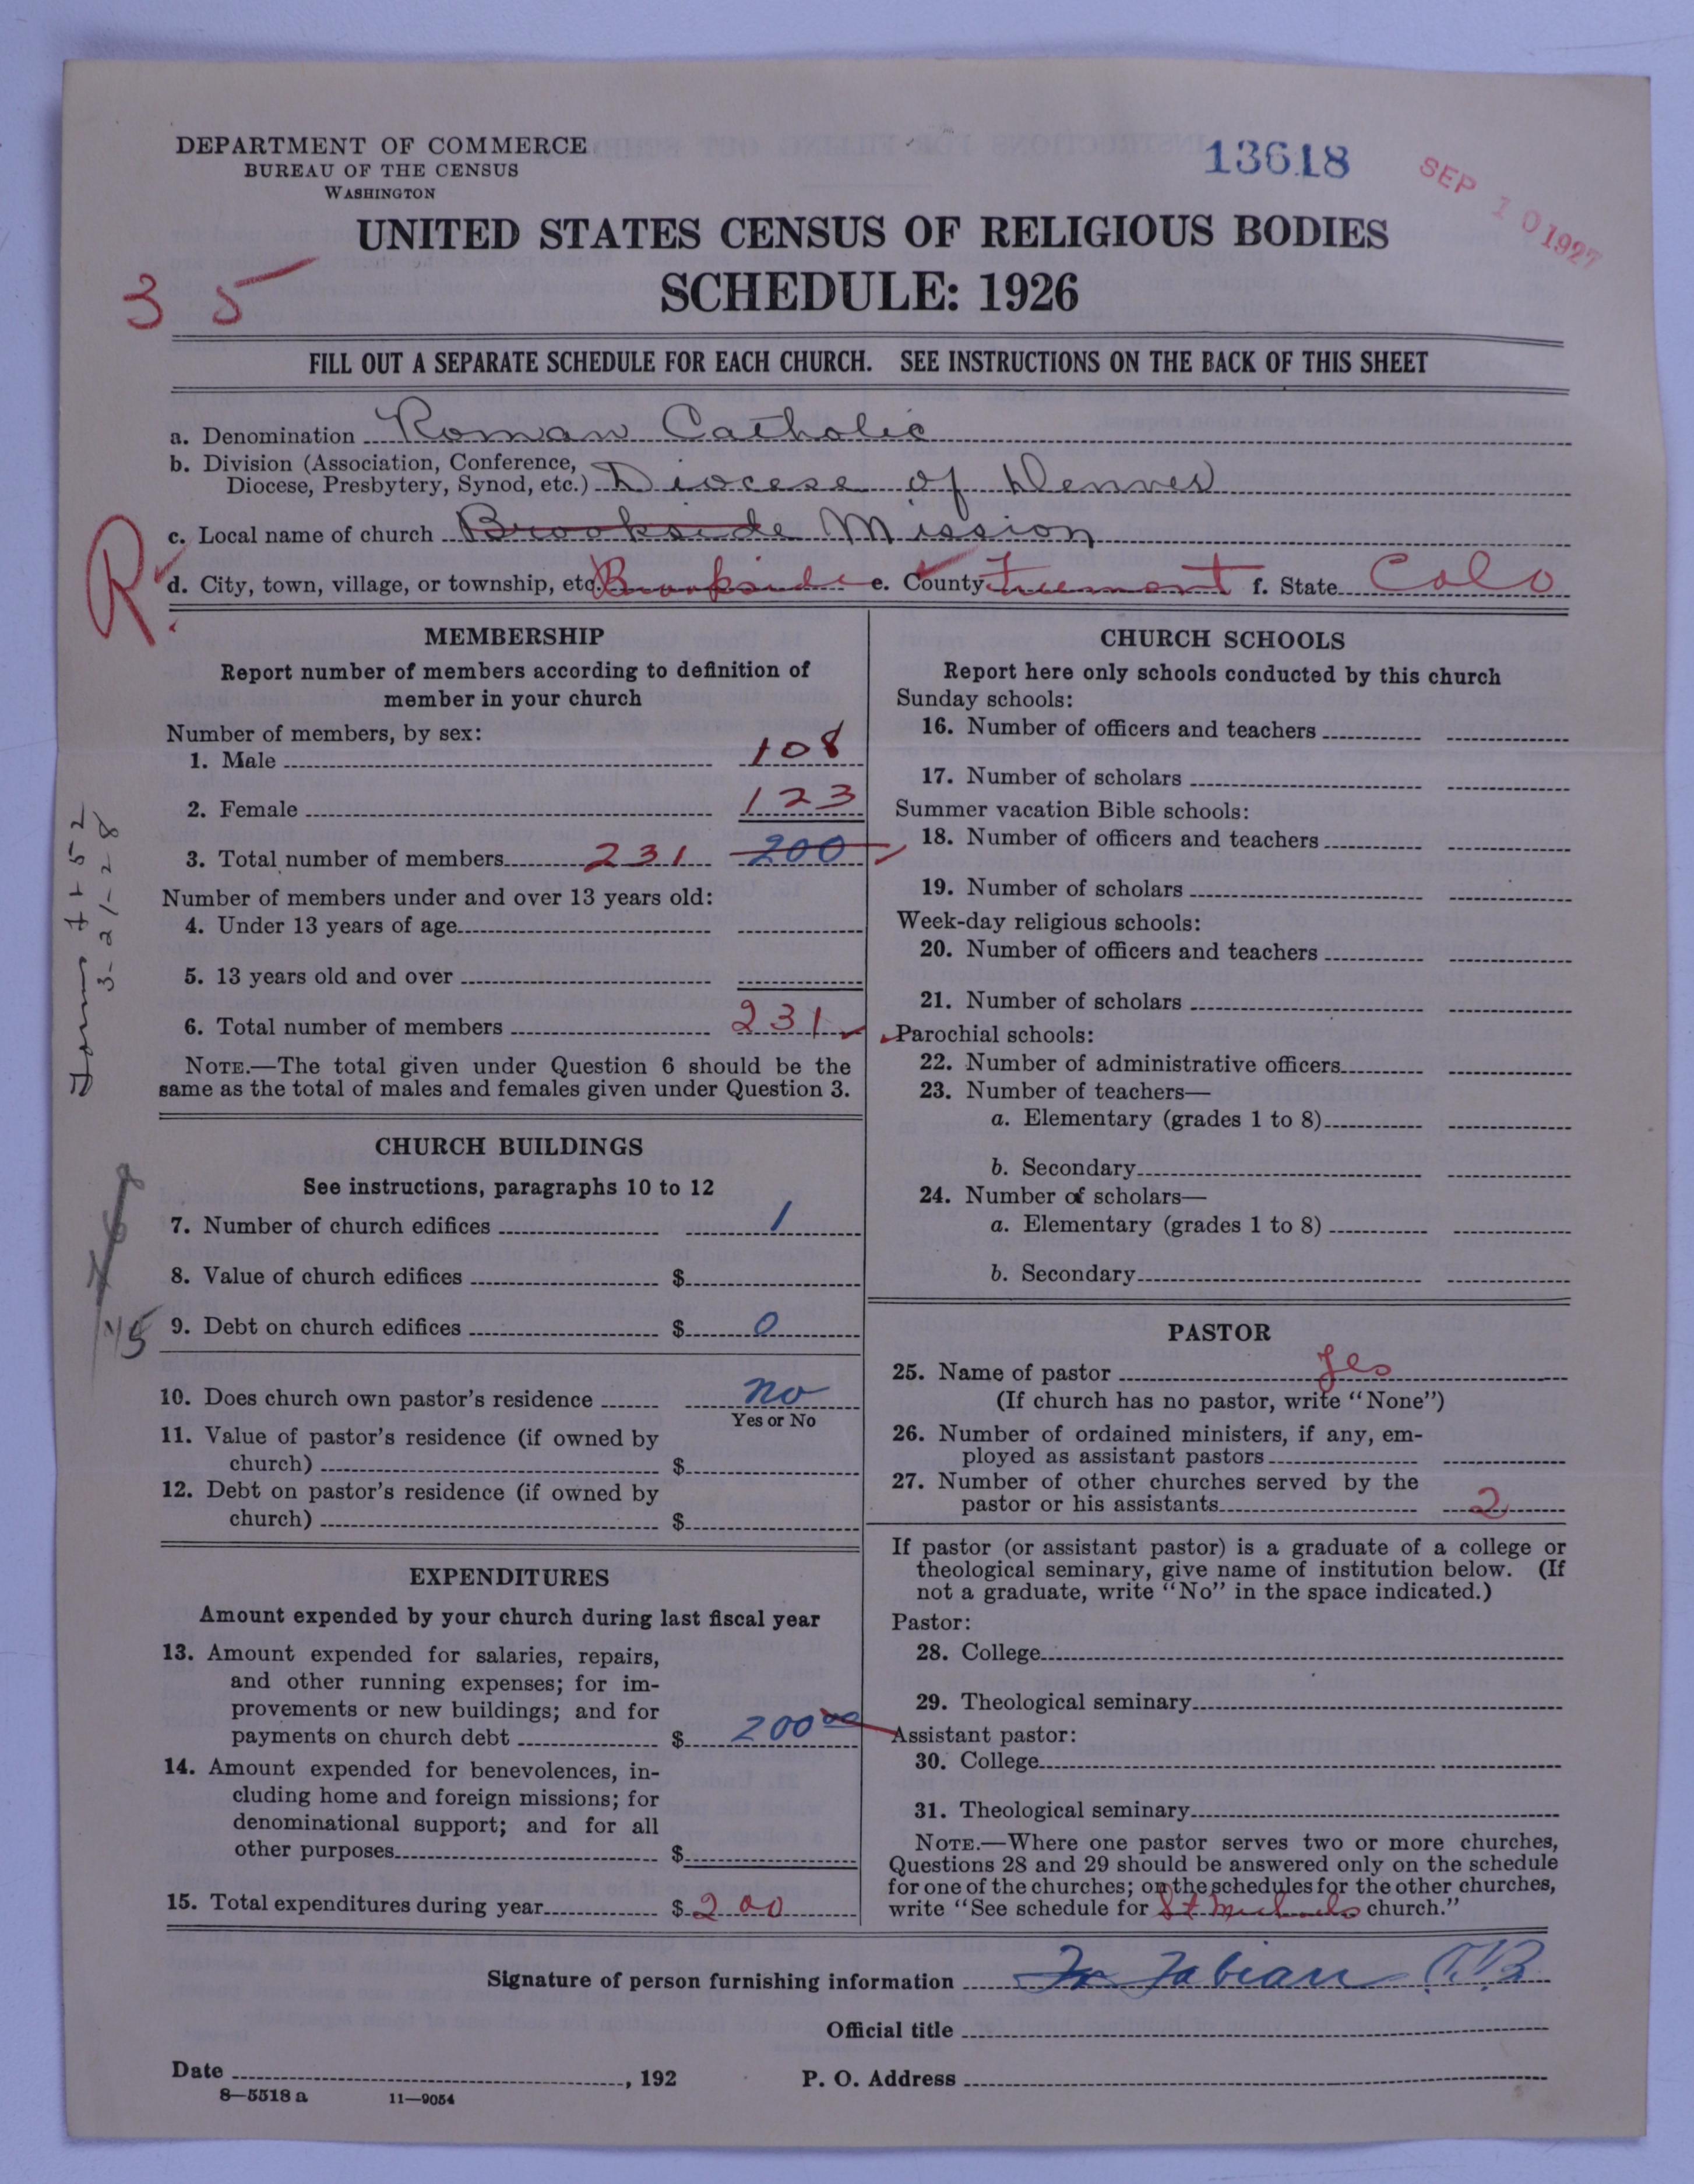 DEPARTMENT OF COMMERCE
BUREAU OF THE CENSUS
WASHINGTON
13618
SEP 10 1927
UNITED STATES CENSUS OF RELIGIOUS BODIES
SCHEDULE: 1926
3 5
FILL OUT A SEPARATE SCHEDULE FOR EACH CHURCH. SEE INSTRUCTIONS ON THE BACK OF THIS SHEET
a. Denomination Roman Catholic
b. Division (Association, Conference,
Diocese, Presbytery, Synod, etc.) Diocese of Denver
c. Local name of church Brookside Mission
R
d. City, town, village, or township, etc. Brookside e. County Fremont f. State Colo
MEMBERSHIP
Report number of members according to definition of
member in your church
Number of members, by sex:
1. Male 108
2. Female 123
3. Total number of members 231 200
Number of members under and over 13 years old:
4. Under 13 years of age
5. 13 years old and over
6. Total number of members 231
NOTE.—The total given under Question 6 should be the
same as the total of males and females given under Question 3.
3-21-28
CHURCH BUILDINGS
See instructions, paragraphs 10 to 12
7. Number of church edifices 1
8. Value of church edifices $
9. Debt on church edifices $ 0
10. Does church own pastor's residence no
Yes or No
11. Value of pastor's residence (if owned by
church) $
12. Debt on pastor's residence (if owned by
church) $
EXPENDITURES
Amount expended by your church during last fiscal year
13. Amount expended for salaries, repairs,
and other running expenses; for im-
provements or new buildings; and for
payments on church debt $ 200 00
14. Amount expended for benevolences, in-
cluding home and foreign missions; for
denominational support; and for all
other purposes $
15. Total expenditures during year $ 200
CHURCH SCHOOLS
Report here only schools conducted by this church
Sunday schools:
16. Number of officers and teachers
17. Number of scholars
Summer vacation Bible schools:
18. Number of officers and teachers
19. Number of scholars
Week-day religious schools:
20. Number of officers and teachers
21. Number of scholars
Parochial schools:
22. Number of administrative officers
23. Number of teachers—
a. Elementary (grades 1 to 8)
b. Secondary
24. Number of scholars—
a. Elementary (grades 1 to 8)
b. Secondary
PASTOR
25. Name of pastor yes
(If church has no pastor, write "None")
26. Number of ordained ministers, if any, em-
ployed as assistant pastors
27. Number of other churches served by the
pastor or his assistants 2
If pastor (or assistant pastor) is a graduate of a college or
theological seminary, give name of institution below. (If
not a graduate, write "No" in the space indicated.)
Pastor:
28. College
29. Theological seminary
Assistant pastor:
30. College
31. Theological seminary
NOTE.—Where one pastor serves two or more churches,
Questions 28 and 29 should be answered only on the schedule
for one of the churches; on the schedules for the other churches,
write "See schedule for St Michaels church."
Signature of person furnishing information Fr Fabian
Official title
Date , 192 P. O. Address
8—5518 a 11—9054